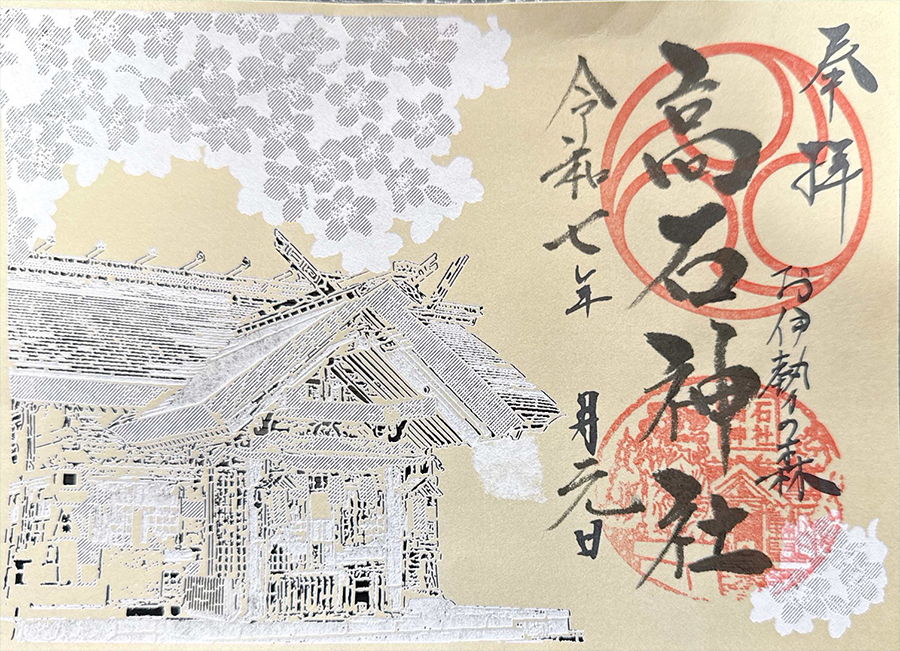 奉拝
お伊勢乃森
高石神社
令和七年 月元日